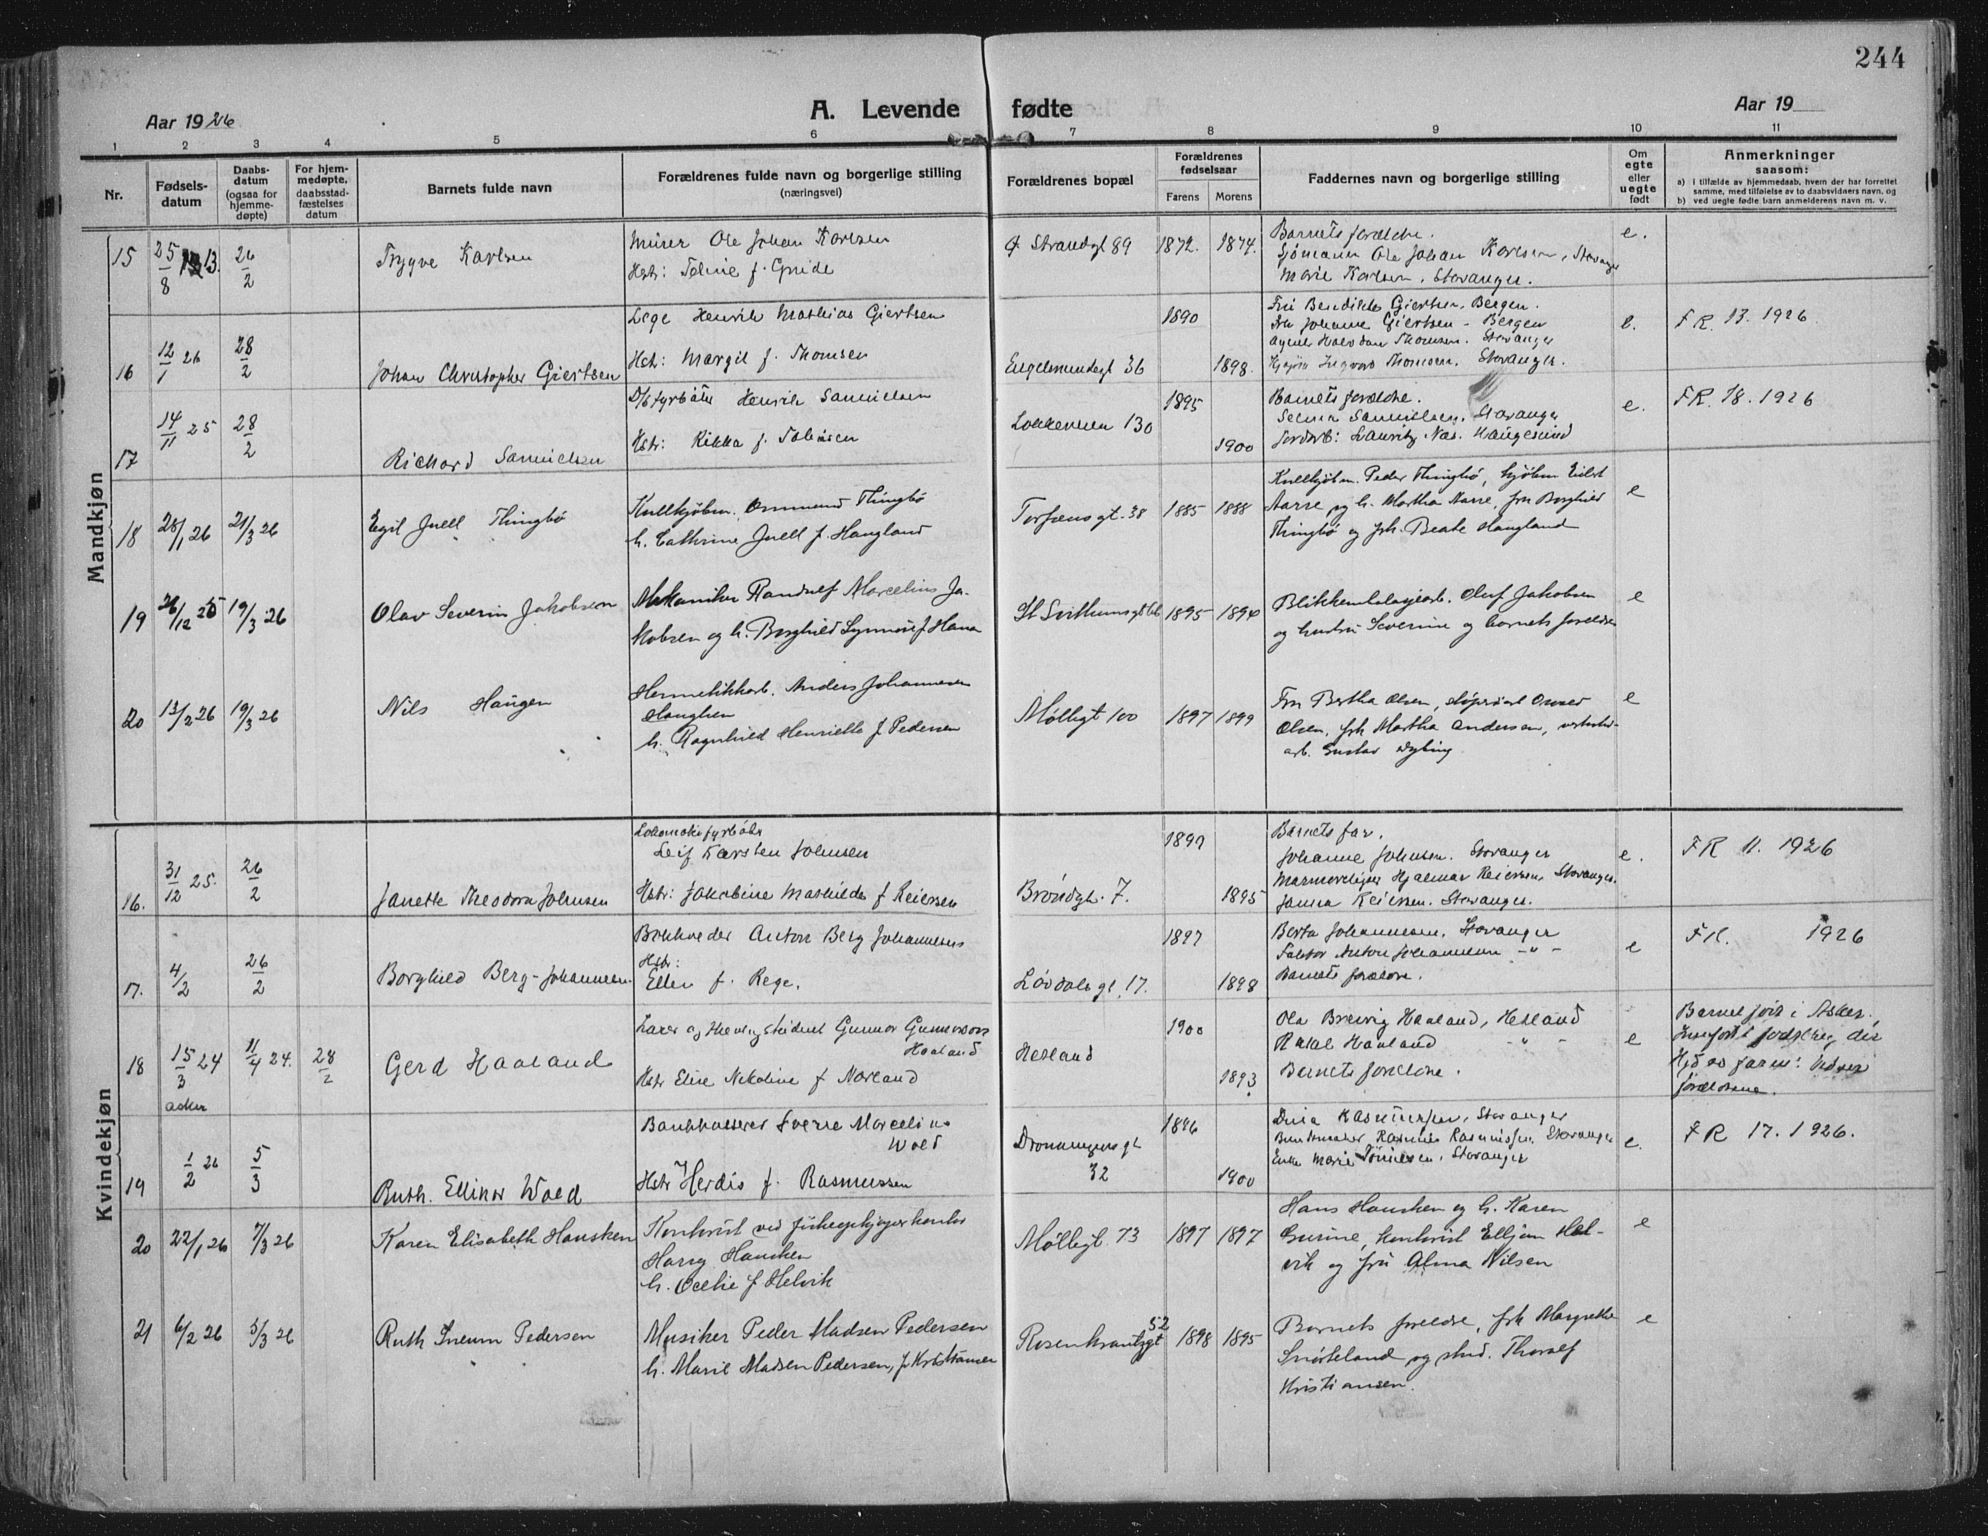 244
Aar 1926
A. Levende fødte
Aar 19
1 2 3 4 5 6 7 8 9 10 11
Nr.
Fødsels-
datum
Daabs-
datum
(ogsaa for
hjemme-
døpte)
For hjem-
medøpte,
daabsstad-
fæstelses
datum
Barnets fulde navn
Forældrenes fulde navn og borgerlige stilling
(næringsvei)
Forældrenes bopæl
Forældrenes
fødselsaar
Farens Morens
Faddernes navn og borgerlige stilling
Om
egte
eller
uegte
født
Anmerkninger
saasom:
a) i tilfælde av hjemmedaab, hvem der har forrettet
samme, med tilføielse av to daabsvidners navn, og
b) ved uegte fødte barn anmelderens navn m. v.
Mandkjøn
15 25/8 13. 26/2
Trygve Karlsen
Murer Ole Johan Karlsen
Hstr: Toline f. Gride
Ø Strandgt 89 1872. 1874.
Barnets forældre.
Sjømann Ole Johan Karlsen, Stavanger
Marie Karlsen, Stavanger.
e.
16 12/1 26 28/2
Johan Christopher Giertsen
Læge Henrik Mathias Giertsen
Hstr: Margit f. Thomsen
Engelsmindegt 36 1890 1898.
Giertsen, Bergen.
Johanne Giertsen - Bergen
Agnes Halvdan Thomsen. Stavanger
Ingvard Thomsen. Stavanger.
e.
F R. 13. 1926
17 14/11 25 28/2
Richard Samuelsen
D/S fyrbøter Henrik Samuelsen
Hstr: Rikka f. Tobiasen
Løkkeveien 130 1895 1900
Barnets forældre.
Selma Samuelsen. Stavanger
Lauritz Næs. Haugesund
e.
F R. 18. 1926
18 28/1 26 21/3 26
Egil Juell Thingbø
Kullkjøbm. Ommund Thingbø
h. Cathrine Juell f Haugland
Torfæusgt. 38 1885 1888
Kullkjøbm. Peder Thingbø, kjøbm Eilert
Aarre og h. Martha Aarre, fru Borghild
Thingbø og frk. Beate Haugland
e
19 26/12 25 19/3 26
Olav Severin Jakobsen
Mekaniker Randulf Marcelius Ja-
kobsen og h. Borghild Synnøve f Hana
St Svithunsgt 1895 1894
Blikkemballagearb. Oluf Jakobsen
og hustru Severine og barnets foreldre
e
20 13/2 26 19/3 26
Nils Haugen
Hermetikkarb. Anders Johannesen
Haughen
h. Ragnhild Henriette f Pedersen
Møllegt 100 1897 1899
Fru Bertha Olsen,
Olsen, frk Martha Andersen,
arb. Gustav
e
Kvindekjøn
16. 31/12 25. 26/2
Janette Theodora Johnsen
Lokomotivfyrbøter
Leif Karsten Johnsen
Hstr: Jakobine Mathilde f Reiersen
Brøndgt. 7. 1895
Barnets far.
Johanne Johnsen. Stavanger
Hjalmar Reiersen, Stavanger.
Janna Reiersen. Stavanger.
e.
F R 11. 1926
17. 4/2 26/2
Borghild Berg-Johannesen.
Bokholder Anton Berg Johannesens
Hstr:
Ellen f. Rege.
Løvdalsgt. 17. 1897 1898
Berta Johannesen. Stavanger
Faktor Anton Johannesen -"-
Barnets forældre.
e
F R. 1926
18 15/3 24 11/4 24. 28/2
asker
Gerd Haaland
Lærer og Gunnar Gunnarson
Haaland
Hstr Elise Nikoline f Norland
Hetland 1900 1893
Ola Breivig Haaland, Hetland
Rakel Haaland - " -
Barnets foreldre.
e
Barnet født i Asker.
forældrene.
19 1/2 26 5/3
Ruth. Ellinor Wold
Bankkasserer Sverre Marcelius
Wold
Hstr Herdis f. Rasmussen
Dronningensgt
32 1896 1900
Dina Rasmussen, Stavanger
Buntmaker Rasmus Rasmussen. Stavanger
Enke Marie Tønnesen, Stavanger
e.
F R 17. 1926.
20 22/1 26 7/3 26
Karen Elisabeth Hansken
Kontorist ved fiskeopkjøperkontor
Harry Hansken
h. Ocelie f Helvik
Møllegt. 73 1897 1897
Hans Hansken og h. Karen
Gurine, kontorist Elljan Hel-
vik og fru Alma Nilsen
e
21 6/2 26 5/3 26
Ruth Sneum Pedersen
Musiker Peder Madsen Pedersen
h. Marie Madsen Pedersen, f Kristiansen
Rosenkrantzgt 52 1898 1895
Barnets foreldre, frk Margrethe
Snørteland og stud. Thoralf
Kristiansen.
e